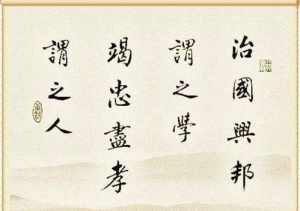 治國興邦
謂之學
竭忠盡孝
謂之人